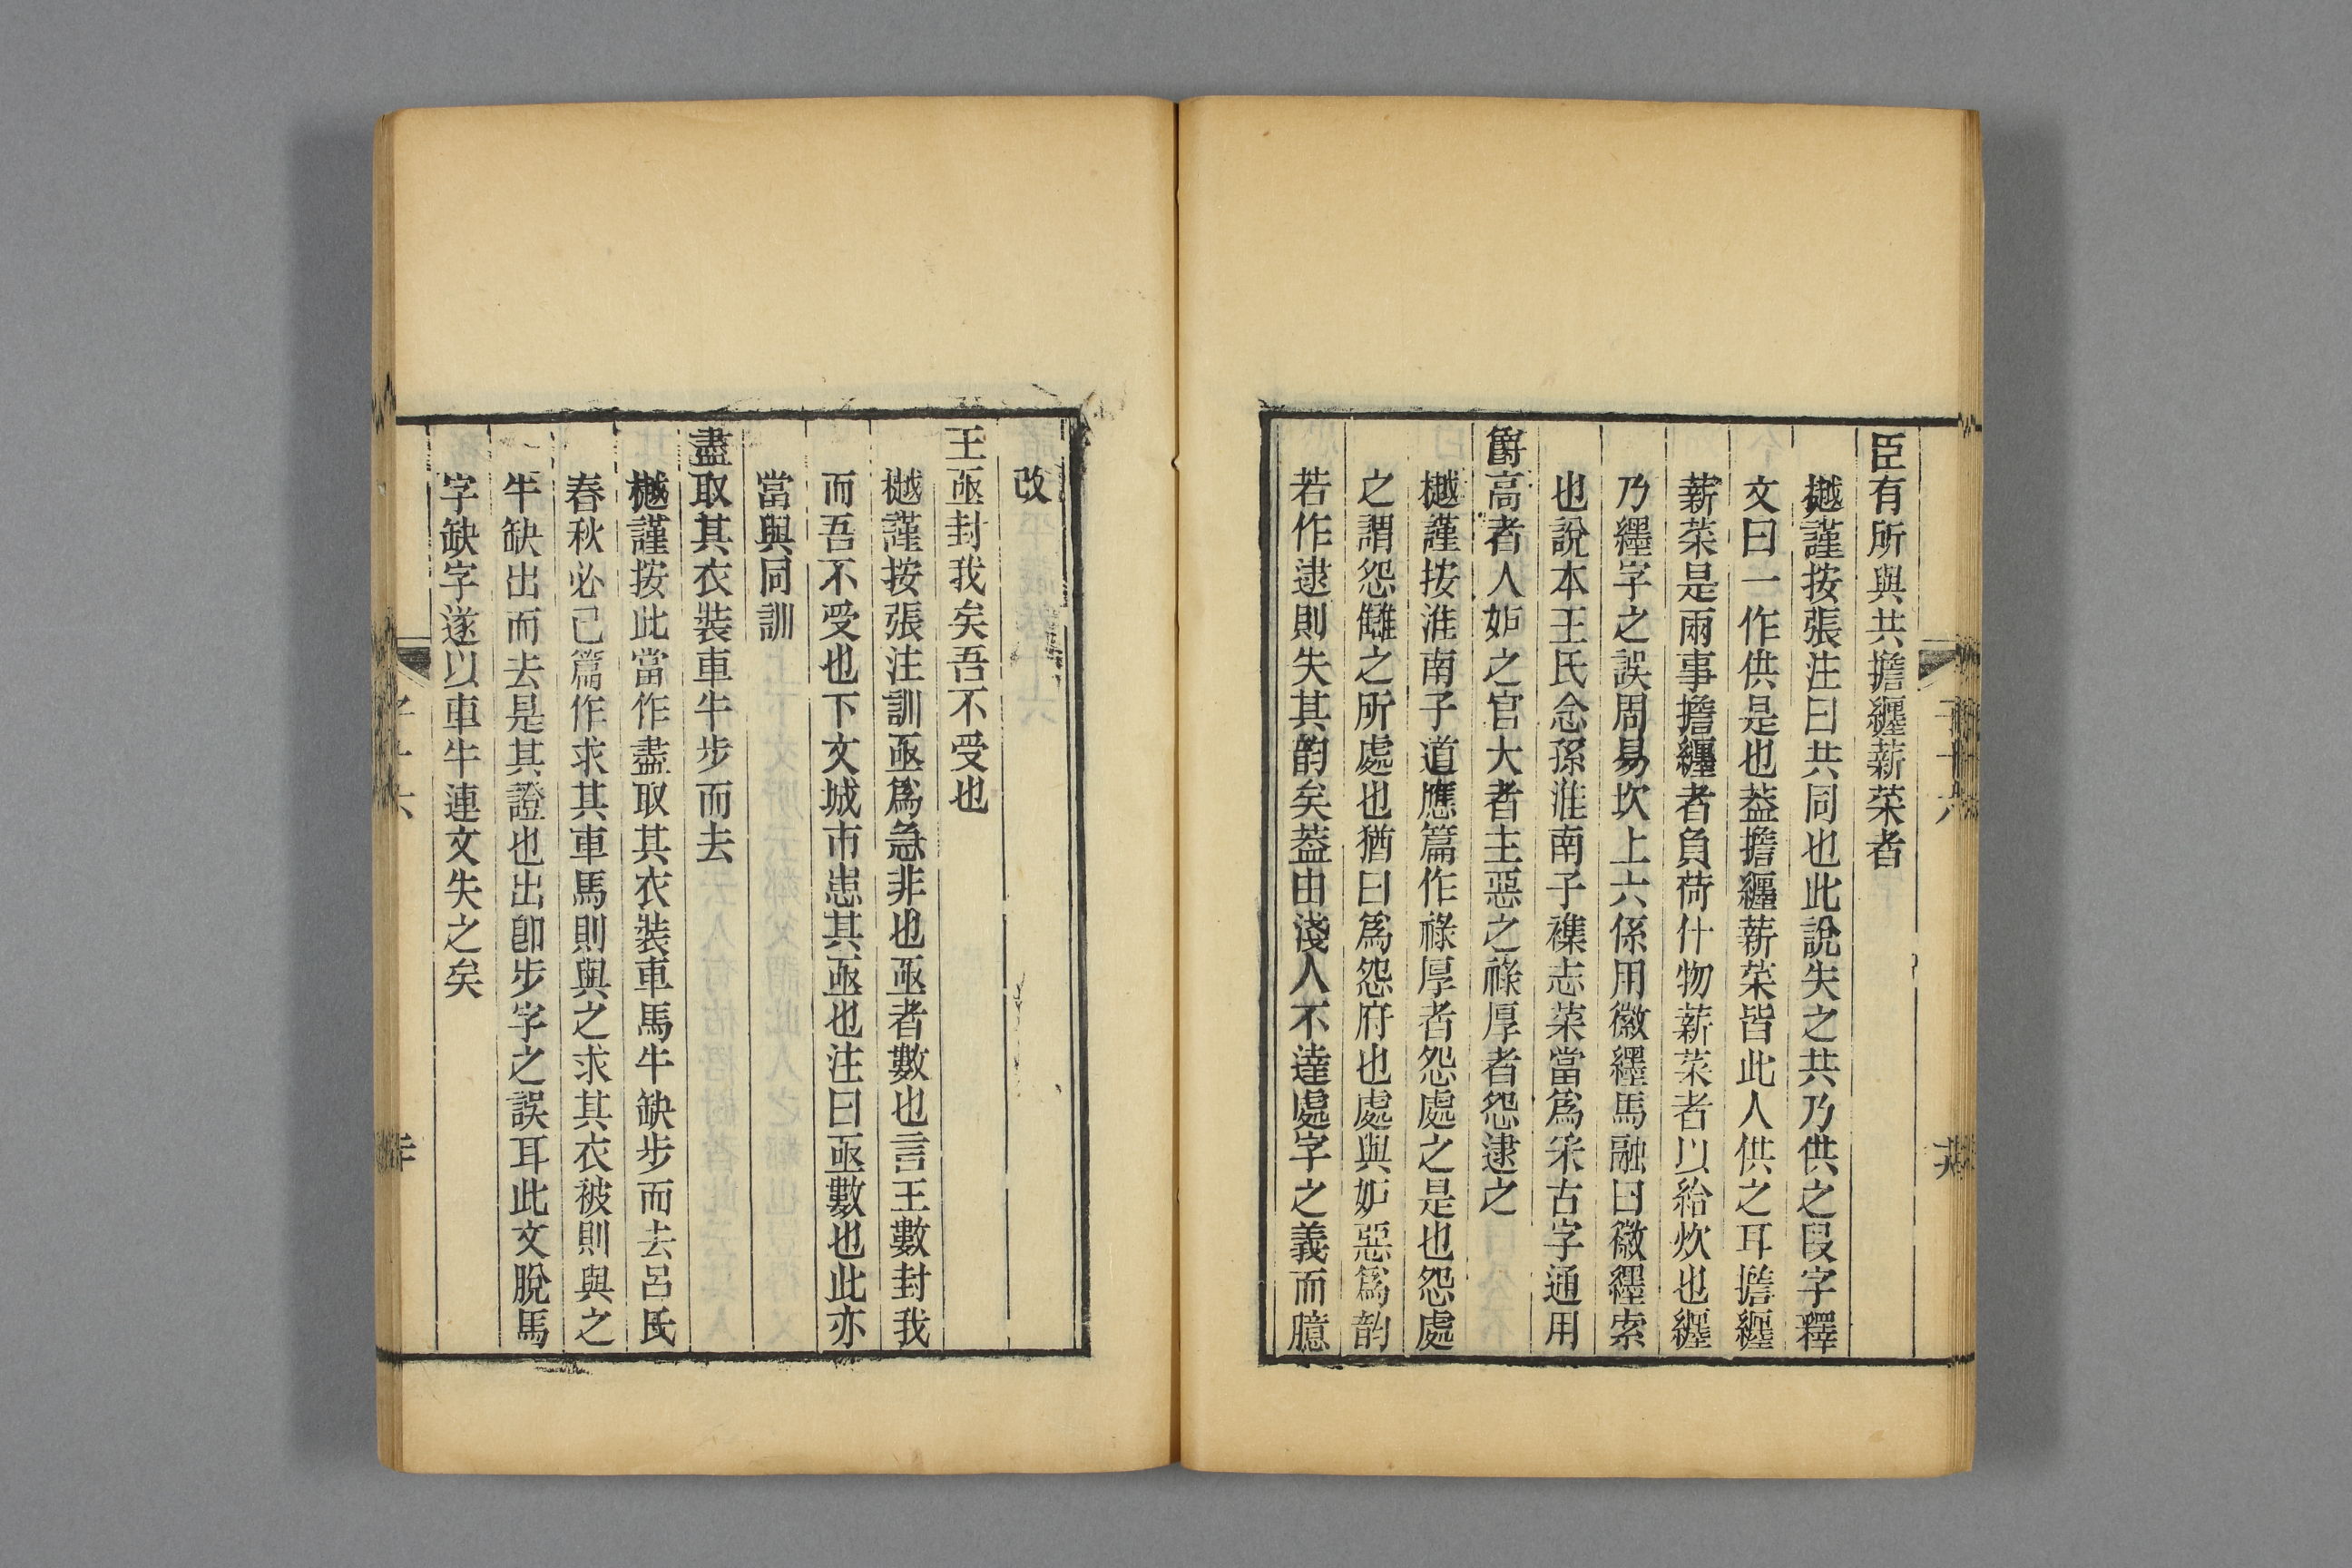 臣有所與共擔纆薪菜者
樾謹按張注曰共同也此說失之共乃供之叚字釋
文曰一作供是也葢擔纆薪菜皆此人供之耳擔纆
薪菜是兩事擔纆者負荷什物薪菜者以給炊也纆
乃纆字之誤周易坎上六係用徽纆馬融曰徽纆索
也說本王氏念孫淮南子襍志菜當爲采古字通用
爵高者人妒之官大者主惡之祿厚者怨逮之
樾謹按淮南子道應篇作祿厚者怨處之是也怨處
之謂怨讎之所處也猶曰爲怨府也處與妒惡爲韵
若作逮則失其韵矣葢由淺人不達處字之義而臆
改
王亟封我矣吾不受也
樾謹按張注訓亟爲急非也亟者數也言王數封我
而吾不受也下文城市患其亟也注曰亟數也此亦
當與同訓
盡取其衣裝車牛步而去
樾謹按此當作盡取其衣裝車馬牛缺步而去呂氏
春秋必己篇作求其車馬則與之求其衣被則與之
牛缺出而去是其證也出卽步字之誤耳此文脫馬
字缺字遂以車牛連文失之矣